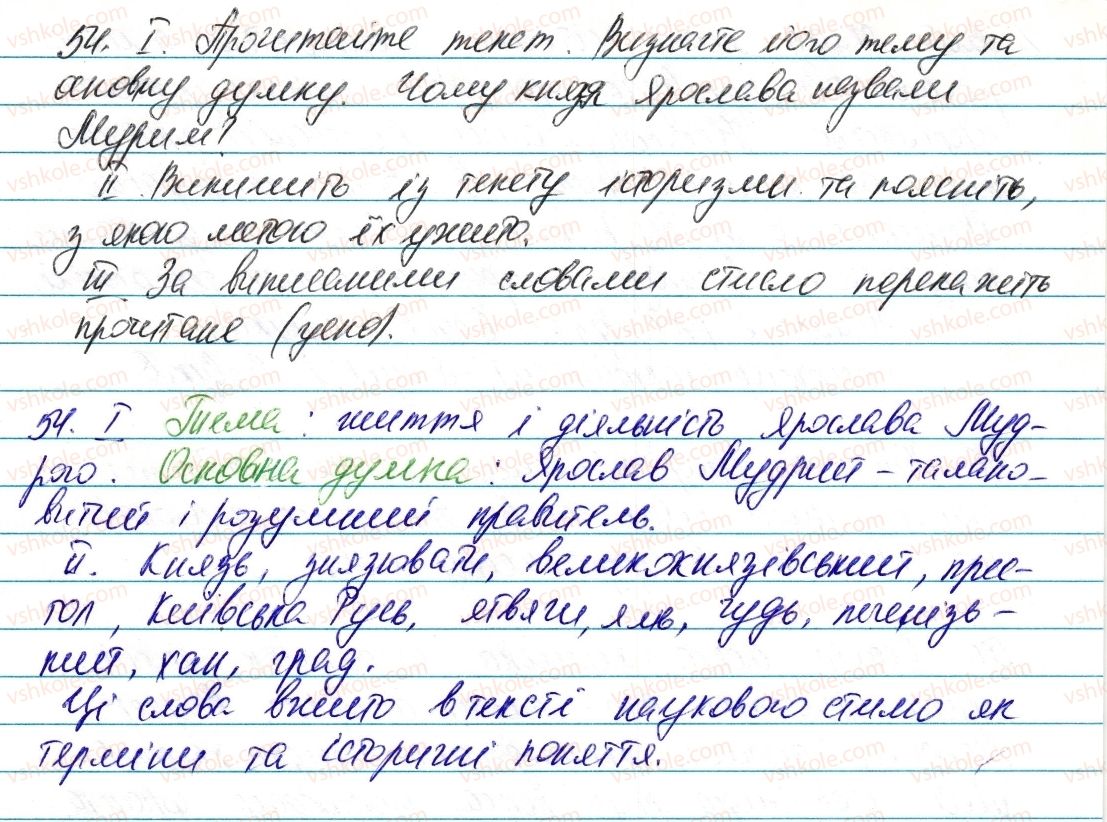 54. І. Прочитайте текст. Визначте його тему та
основну думку. Чому князя Ярослава назвали
Мудрим?
ІІ. Випишіть із тексту історизми та поясніть,
з якою метою їх ужито.
ІІІ. За виписаними словами стисло перекажіть
прочитане (усно).
54. І Тема: життя і діяльність Ярослава Муд-
рого. Основна думка: Ярослав Мудрий – талано-
витий і розумний правитель.
ІІ. Князь, князювати, великокнязівський, прес-
тол, Київська Русь, ятвяги, ям, чудь, печенізь-
кий, хан, град.
Ці слова вжито в тексті наукового стилю як
терміни та історичні поняття.